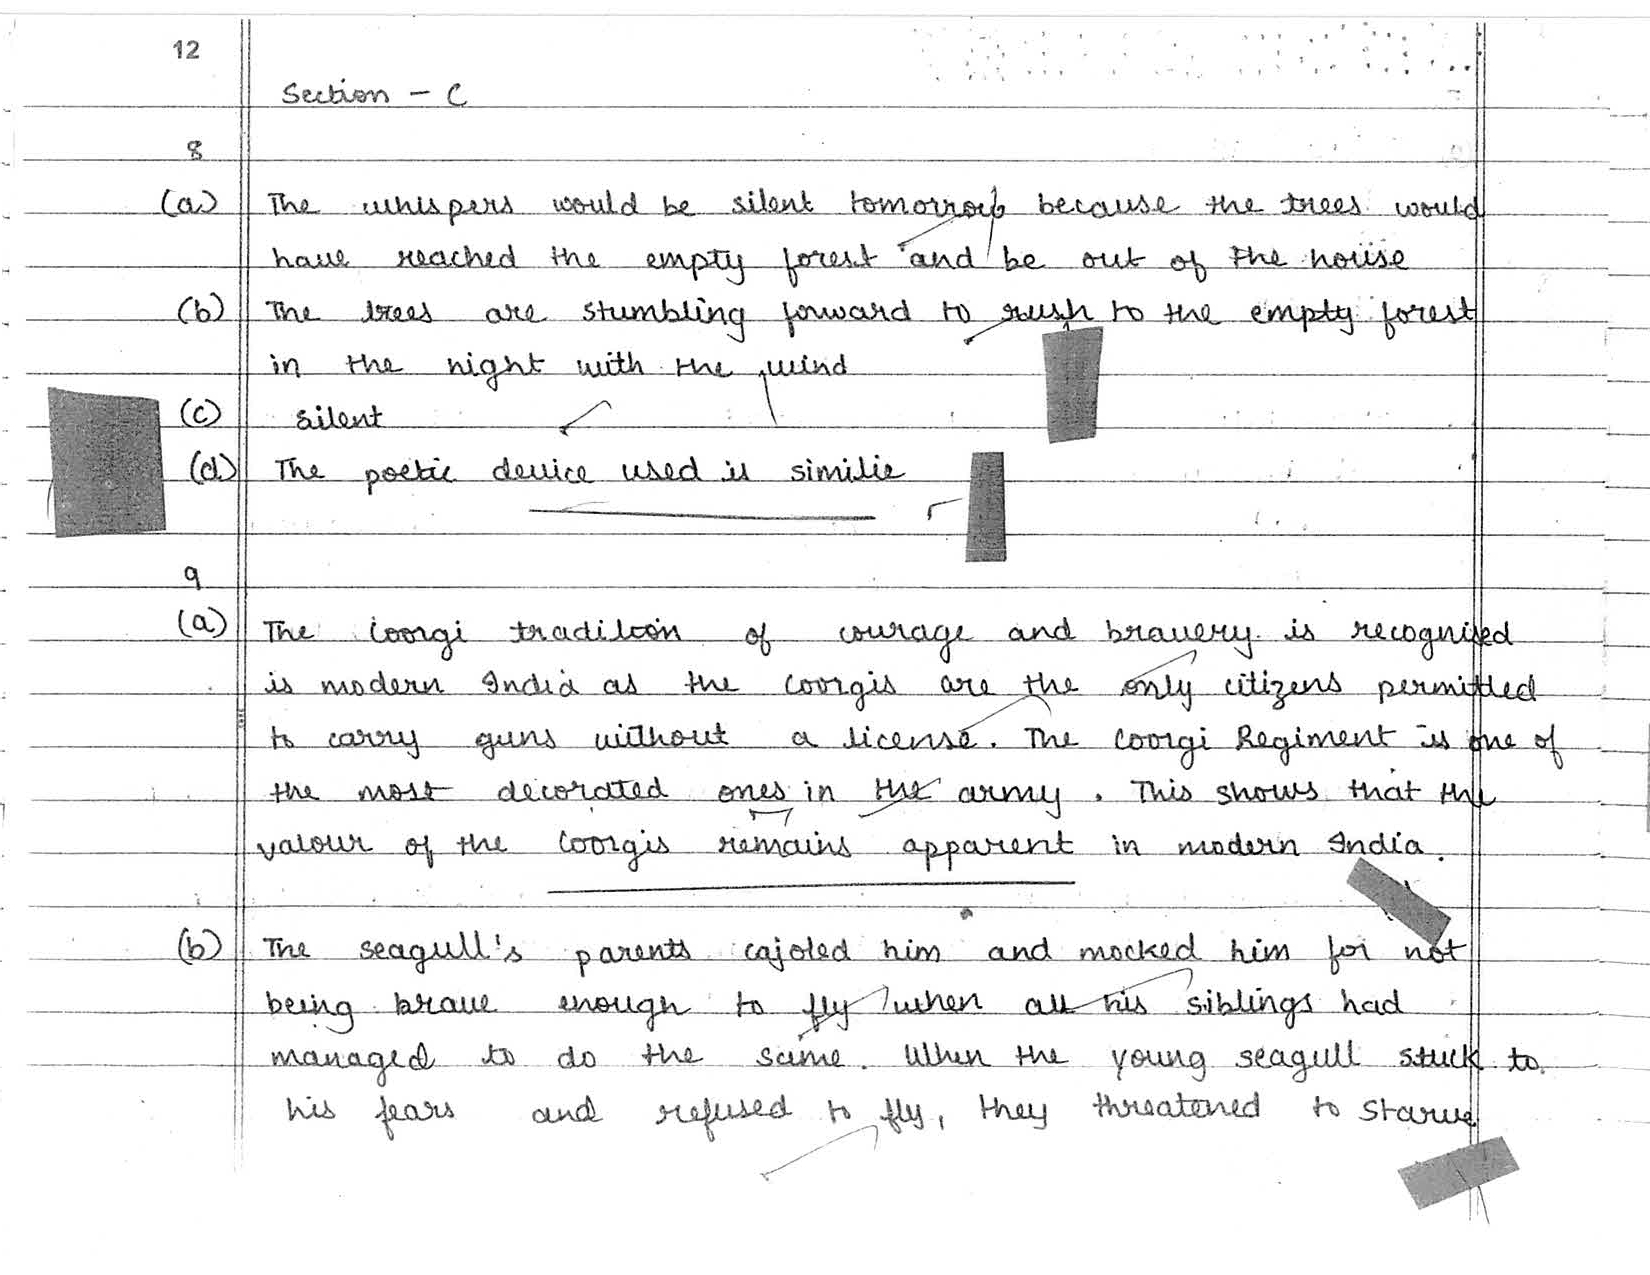 12
Section - C
8
(a) The whispers would be silent tomorrow because the trees would
have reached the empty forest and be out of the house
(b) The trees are stumbling forward to rush to the empty forest
in the night with the wind
(c) silent
(d) The poetic device used is similie
9
(a) The Coorgi tradition of courage and bravery is recognised
is modern India as the Coorgis are the only citizens permitted
to carry guns without a license. The Coorgi Regiment is one of
the most decorated ones in the army. This shows that the
valour of the Coorgis remains apparent in modern India.
(b) The seagull's parents cajoled him and mocked him for not
being brave enough to fly when all his siblings had
managed to do the same. When the young seagull stuck to
his fears and refused to fly, they threatened to starve